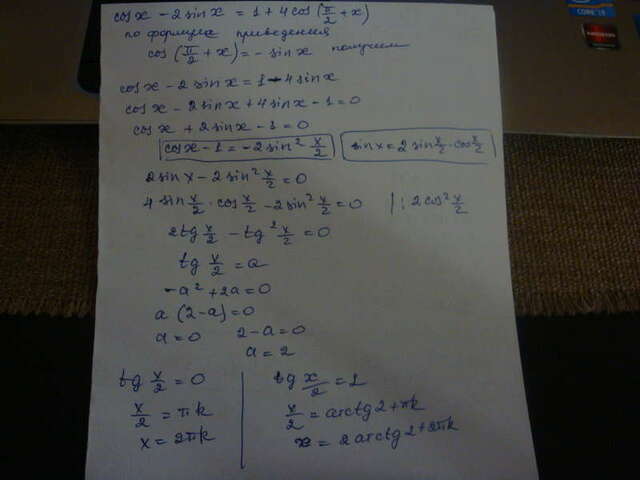 cos x − 2 sin x = 1 + 4 cos (π/2 + x)
по формуле приведения
cos (π/2 + x) = − sin x получим
cos x − 2 sin x = 1 − 4 sin x
cos x − 2 sin x + 4 sin x − 1 = 0
cos x + 2 sin x − 1 = 0
cos x − 1 = −2 sin² x/2 sin x = 2 sin x/2 · cos x/2
2 sin x − 2 sin² x/2 = 0
4 sin x/2 · cos x/2 − 2 sin² x/2 = 0 | : 2 cos² x/2
2 tg x/2 − tg² x/2 = 0
tg x/2 = a
−a² + 2a = 0
a (2 − a) = 0
a = 0 2 − a = 0
a = 2
tg x/2 = 0
x/2 = πk
x = 2πk
tg x/2 = 2
x/2 = arctg 2 + πk
x = 2 arctg 2 + 2πk
CORE i3